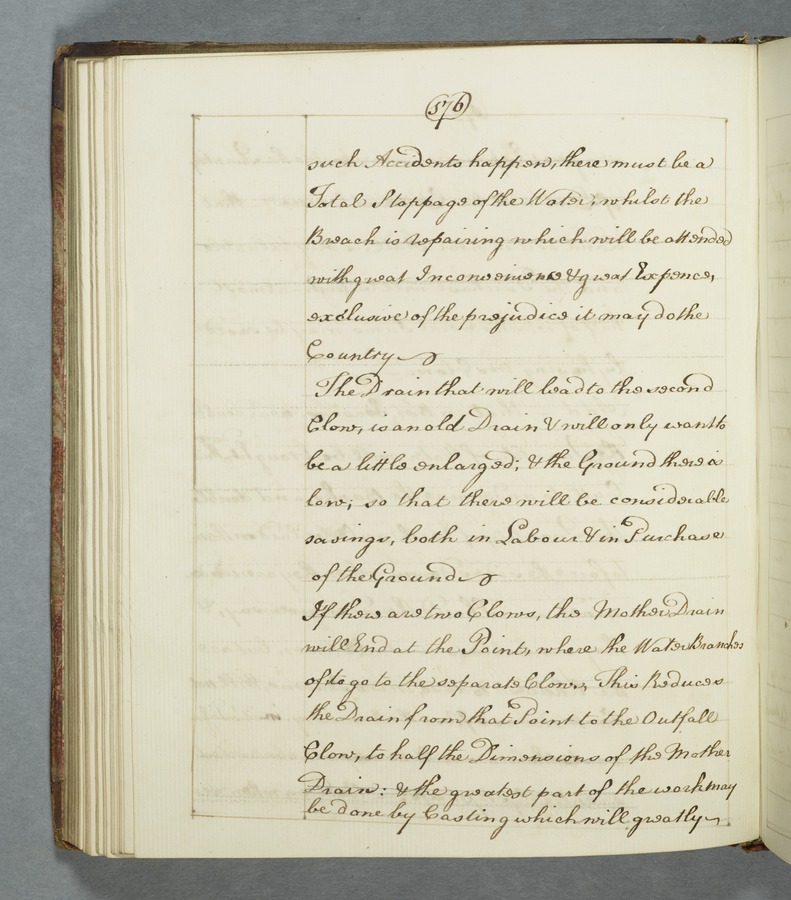 576
such Accidents happen, there must be a
Total Stoppage of the Water, whilst the
Breach is repairing which will be attended
with great Inconvenience & great Expence,
exclusive of the prejudice it may do the
Country
The Drain that will lead to the second
Clow, is an old Drain & will only want to
be a little enlarged; & the Ground there is
low; so that there will be considerable
savings, both in Labour & in Purchase
of the Ground
If there are two Clows, the Mother Drain
will End at the Point, where the Water Branches
of to go to the separate Clows, This Reduces
the Drain from that Point to the Outfall
Clow, to half the Dimensions of the Mother
Drain: & the greatest part of the work may
be done by Casting which will greatly